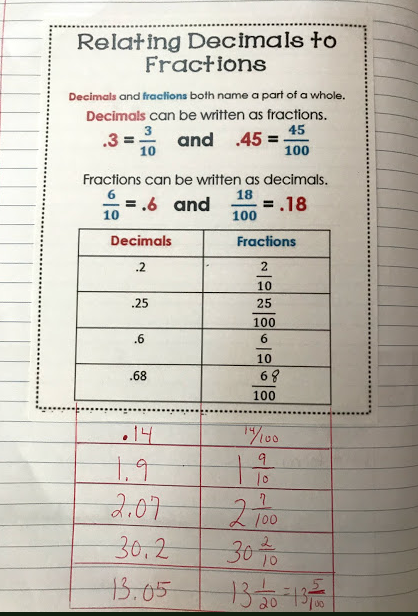 Relating Decimals to
Fractions
Decimals and fractions both name a part of a whole.
Decimals can be written as fractions.
.3 = 3/10 and .45 = 45/100
Fractions can be written as decimals.
6/10 = .6 and 18/100 = .18
Decimals Fractions
.2 2/10
.25 25/100
.6 6/10
.68 68/100
.14 14/100
1.9 1 9/10
2.07 2 7/100
30.2 30 2/10
13.05 13 1/20 = 13 5/100